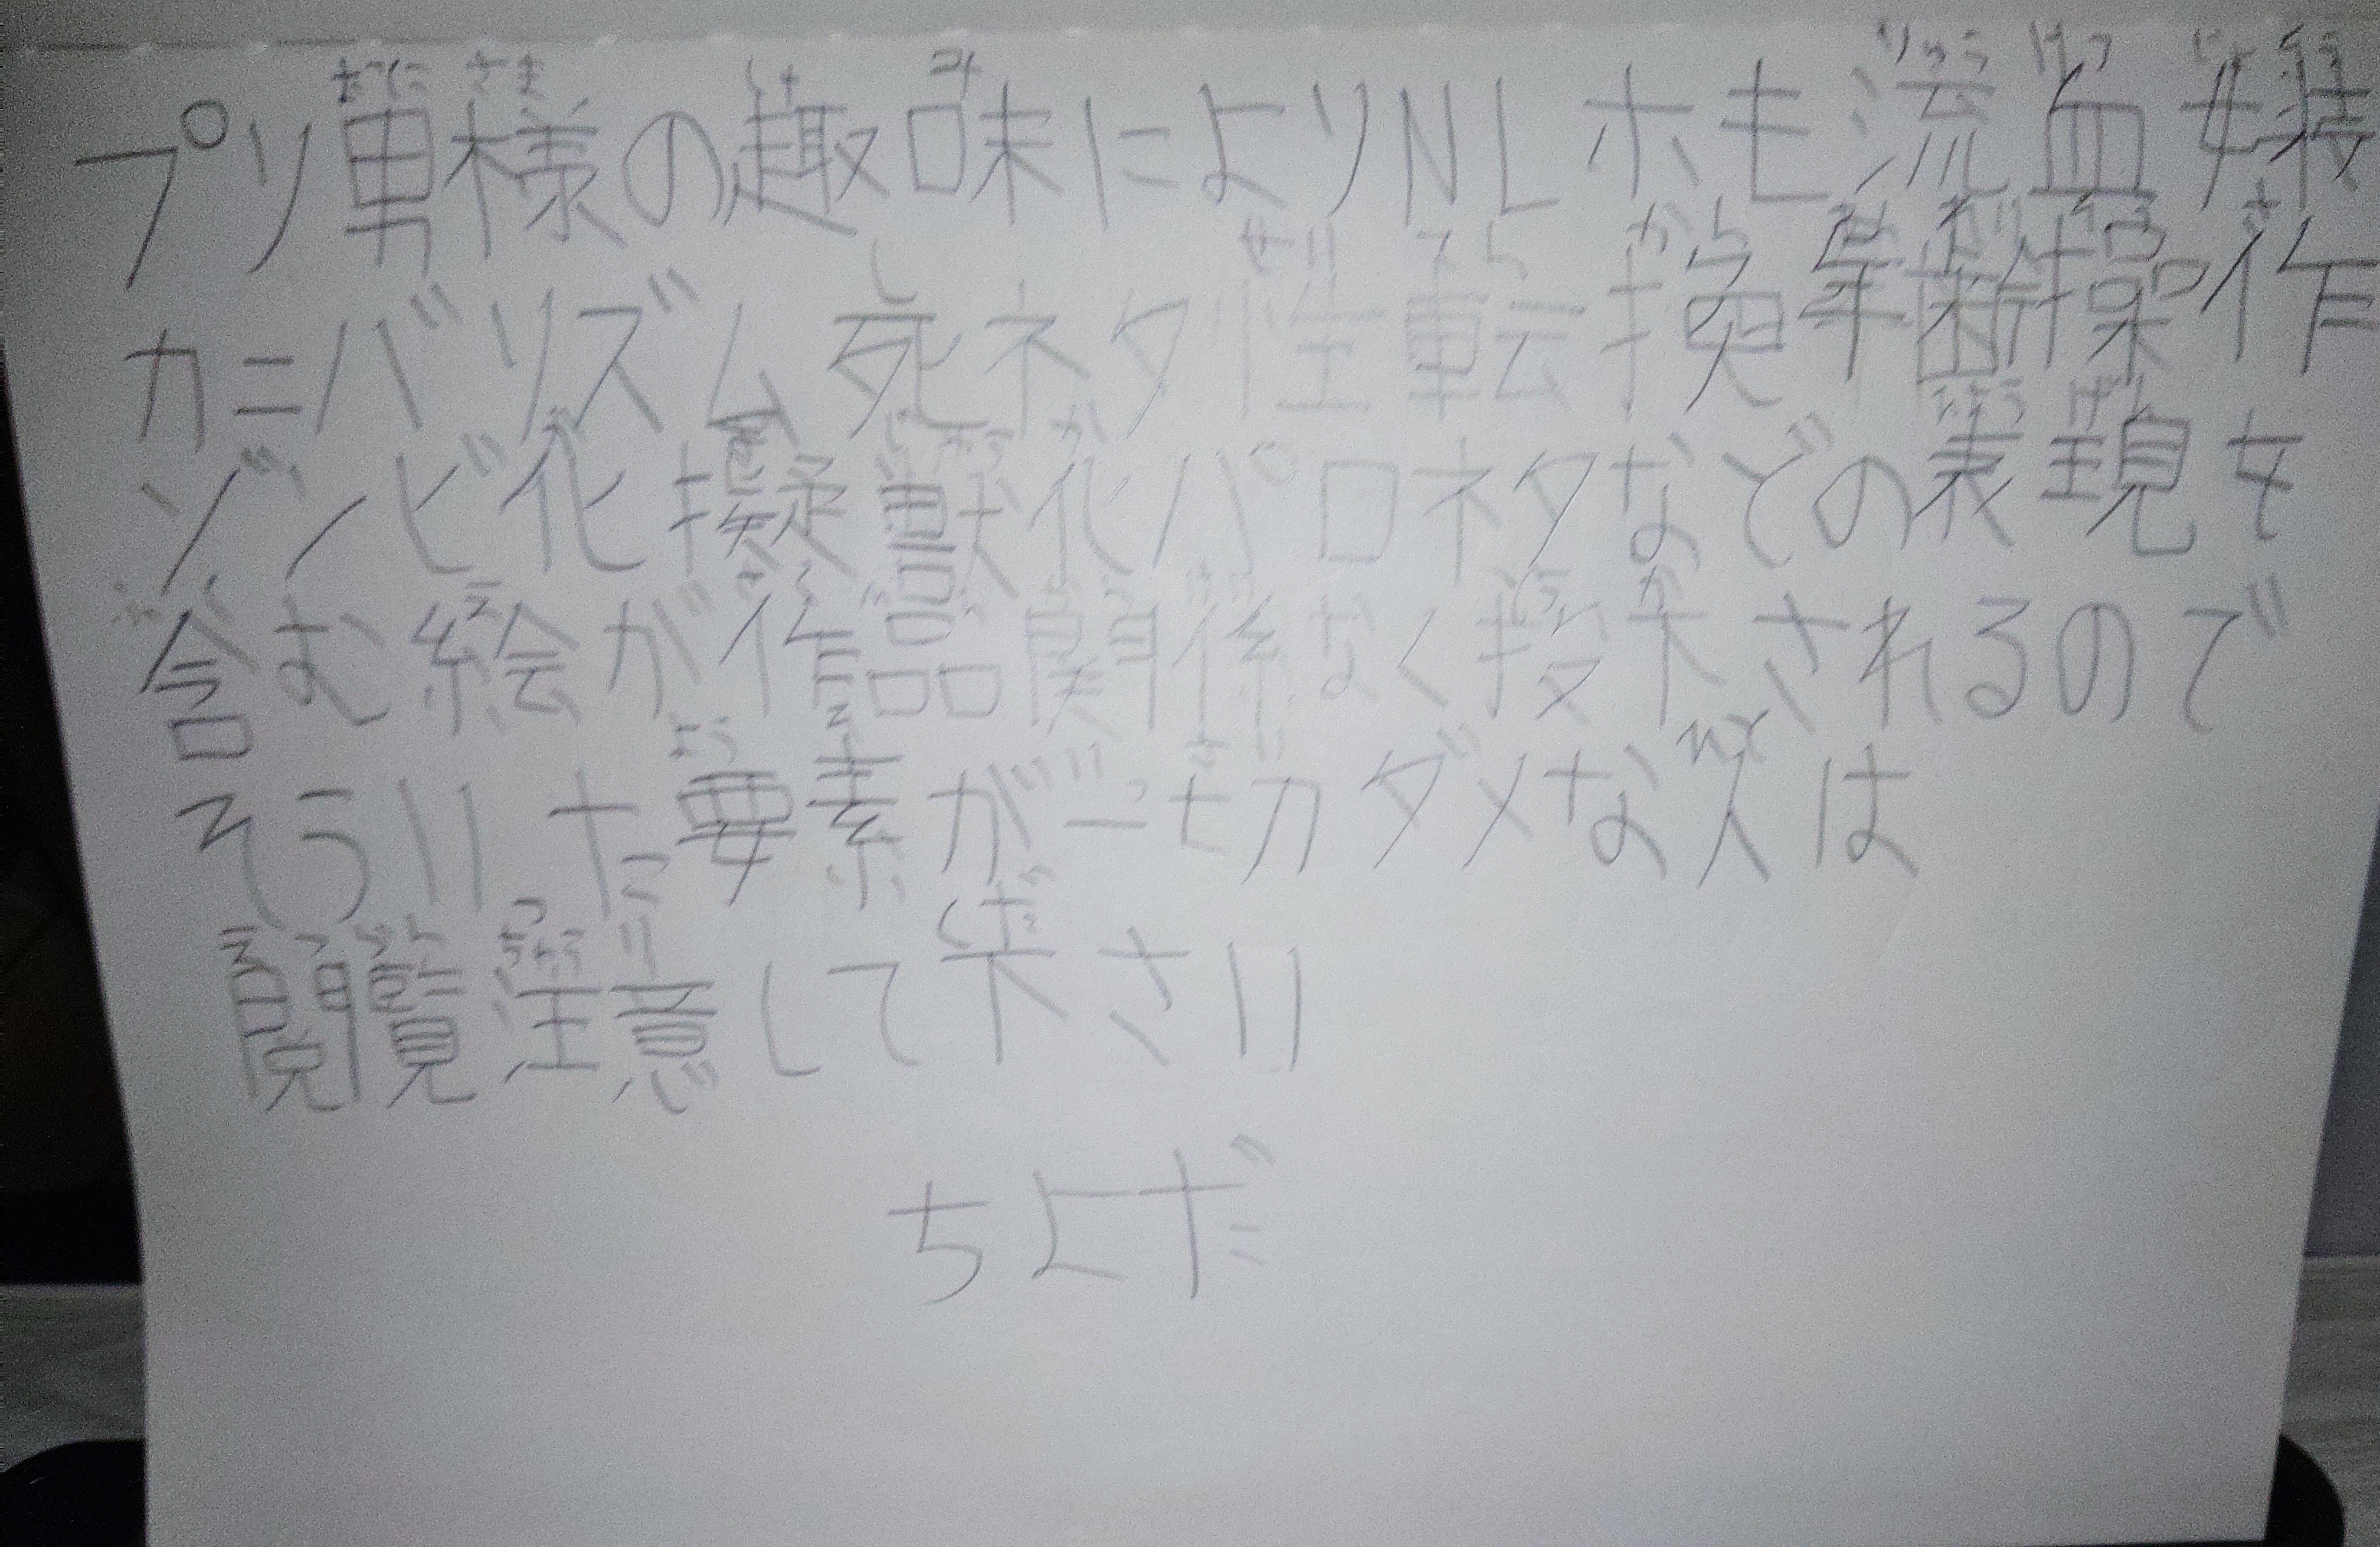 プリ男様の趣味によりNLホモ流血女装
カニバリズム死ネタ性転換年齢操作
ゾンビ化擬獣化パロネタなどの表現を
含む絵が作品関係なく投下されるので
そういった要素が一切ダメな人は
閲覧注意して下さい